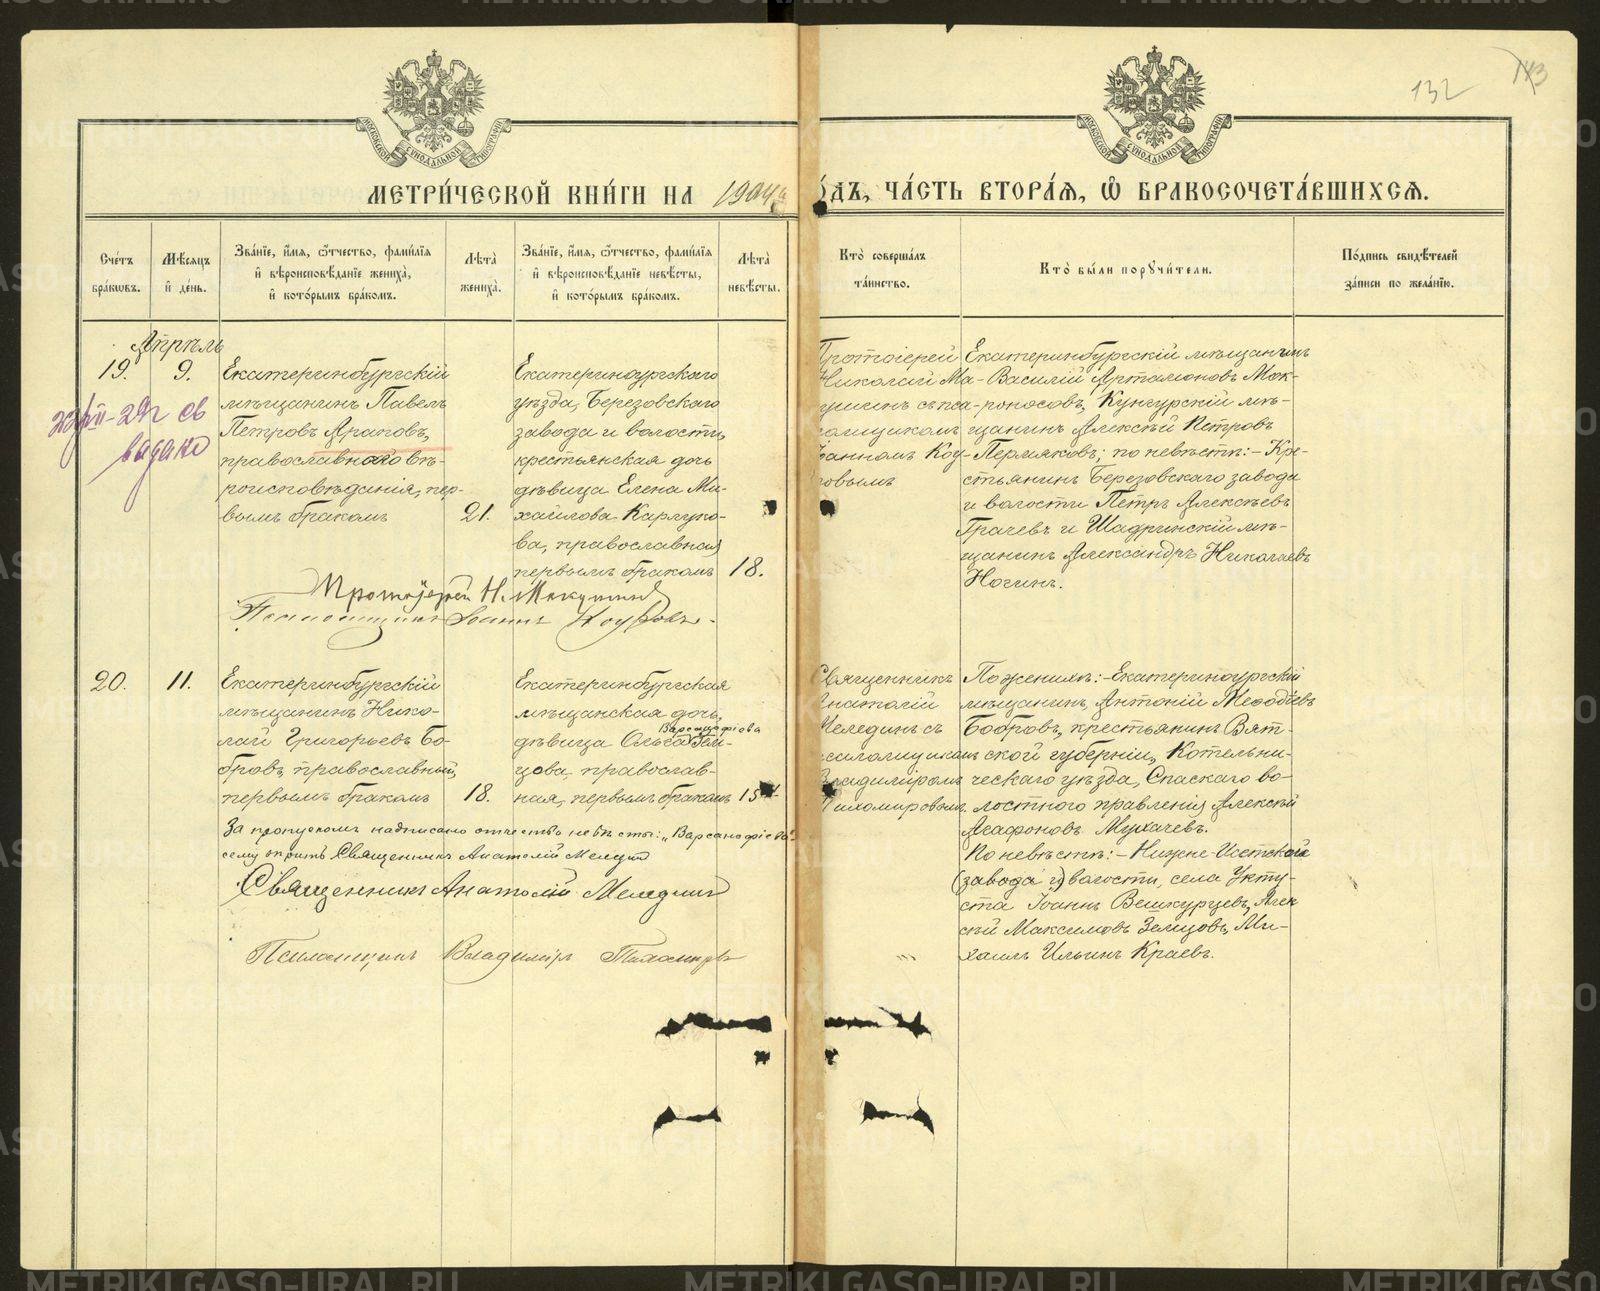 132
143
МОСКОВСКОЙ СѴНОДАЛЬНОЙ ТИПОГРАФІИ
МОСКОВСКОЙ СѴНОДАЛЬНОЙ ТИПОГРАФІИ
МЕТРИ́ЧЕСКОЙ КНИ́ГИ НА 1904 го́дъ, ЧА́СТЬ ВТОРА́Я, Ѡ҆ БРАКОСОЧЕТА́ВШИХСѦ.
Сче́тъ
бра́кѡвъ.
Мѣ́сѧцъ
и҆ де́нь.
Зва́нїе, и҆́мѧ, ѻ҆́тчество, фами́лїѧ
и҆ вѣроисповѣ́данїе жениха̀,
и҆ кото́рымъ бра́комъ.
Лѣ́та
жениха̀.
Зва́нїе, и҆́мѧ, ѻ҆́тчество, фами́лїѧ
и҆ вѣроисповѣ́данїе невѣ́сты,
и҆ кото́рымъ бра́комъ.
Лѣ́та
невѣ́сты.
Кто̀ соверша́лъ
та́инство.
Кто̀ бы́ли порꙋчи́тели.
По́дпись свидѣ́телей
за́писи по жела́нїю.
Апрѣль
19.
9.
Екатеринбургскій
мѣщанинъ Павелъ
Петровъ Араповъ,
православного вѣ-
роисповѣданія, пер-
вымъ бракомъ
21.
Екатеринбургскаго
уѣзда, Березовскаго
завода и волости,
крестьянская дочь
дѣвица Елена Ми-
хаилова Карлуко-
ва, православная
первымъ бракомъ
18.
Протоіерей
Николай Ма-
кушинъ съ пса-
ломщикомъ
Іоанномъ Коу-
ровымъ
Екатеринбургскій мѣщанинъ
Василій Артамоновъ Мок-
роносовъ, Кунгурскій мѣ-
щанинъ Алексѣй Петровъ
Пермяковъ; по невѣстѣ:- Кре-
стьянинъ Березовскаго завода
и волости Петръ Алексѣевъ
Грачевъ и Шадринскій мѣ-
щанинъ Александръ Николаевъ
Ногинъ.
выдано
Протоіерей Н. Макушинъ
Псаломщикъ Іоаннъ Коуровъ.
20.
11.
Екатеринбургскій
мѣщанинъ Нико-
лай Григорьевъ Бо-
бровъ православный,
первымъ бракомъ
18.
Екатеринбургская
мѣщанская дочь,
Варсанофіева
дѣвица Ольга Зем-
цова, православ-
ная, первымъ бракомъ
Священникъ
Анатолій
Мелединъ съ
псаломщикомъ
Владиміромъ
Тихомировымъ.
По женихѣ:- Екатеринбургскій
мѣщанинъ, Антоній Меѳодіевъ
Бобровъ, крестьянинъ Вят-
ской губерніи, Котельни-
ческаго уѣзда, Спаскаго во-
лостного правленія Алексѣй
Агафоновъ Мухачевъ.
По невѣстѣ:- Нижне-Исетской
(завода и) волости, села Укту-
ста Іоаннъ Вешкурцевъ, Алек
сѣй Максимовъ Земцовъ, Ми-
хаилъ Ильинъ Краевъ.
За пропускомъ надписано отчество невѣсты: „Варсанофіева"
сему скрѣпъ Священникъ Анатолій Мелединъ
Священникъ Анатолій Мелединъ
Псаломщикъ Владиміръ Тихомировъ
METRIKI.GASO-URAL.RU